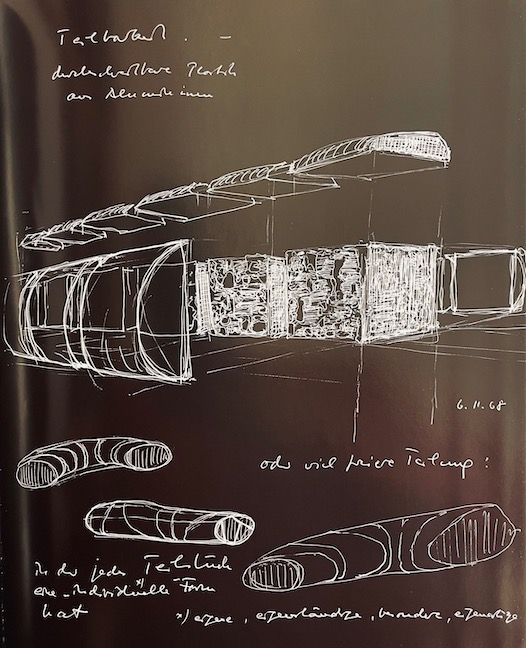 Teilbarkeit. –
durchschreitbare Plastik
aus Aluminium
6.11.68
oder viel freiere Teilung:
in der jedes Teilstück
eine individuelle *) Form
hat
*) eigene, eigenständige, besondere, eigenartige